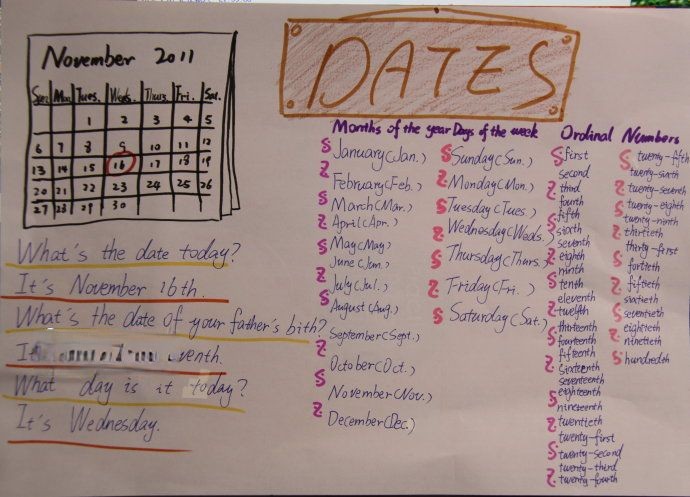 DATES
November 2011
Sun. Mon. Tues. Weds. Thurs. Fri. Sat.
1 2 3 4 5
6 7 8 9 10 11 12
13 14 15 16 17 18 19
20 21 22 23 24 25 26
27 28 29 30
What's the date today?
It's November 16th.
What's the date of your father's bith?
It
eventh.
What day is it today?
It's Wednesday.
Months of the year
January (Jan.)
February (Feb.)
March (Mar.)
April (Apr.)
May (May)
June (Jun.)
July (Jul.)
August (Aug.)
September (Sept.)
October (Oct.)
November (Nov.)
December (Dec.)
Days of the week
Sunday (Sun.)
Monday (Mon.)
Tuesday (Tues.)
Wednesday (Weds.)
Thursday (Thurs.)
Friday (Fri.)
Saturday (Sat.)
Ordinal Numbers
first
second
third
fourth
fifth
sixth
seventh
eighth
ninth
tenth
eleventh
twelfth
thirteenth
fourteenth
fifteenth
sixteenth
seventeenth
eighteenth
nineteenth
twentieth
twenty-first
twenty-second
twenty-third
twenty-fourth
twenty-fifth
twenty-sixth
twenty-seventh
twenty-eighth
twenty-ninth
thirtieth
thirty-first
fortieth
fiftieth
sixtieth
seventieth
eightieth
ninetieth
hundredth